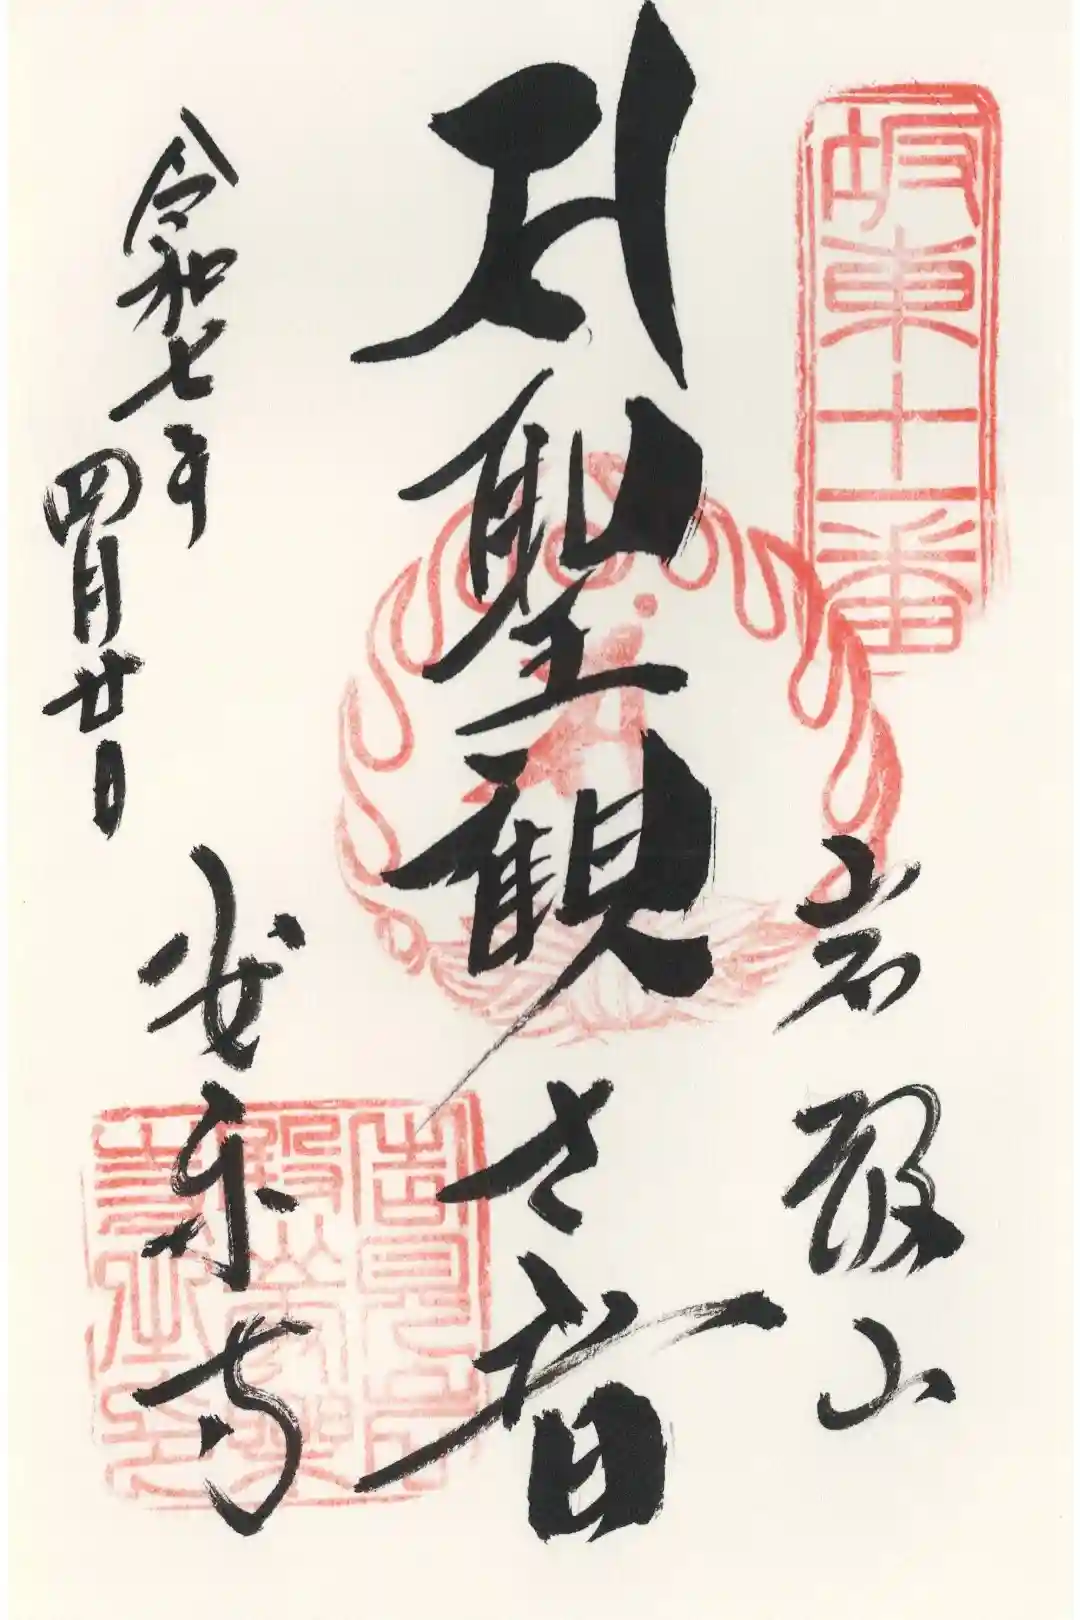 坂東十一番
岩殿山
𑖭 聖観世音
令和七年
四月廿日
安楽寺